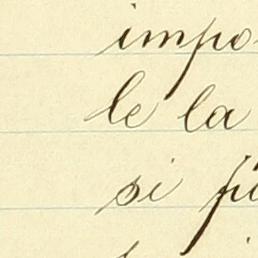 impo
le la
si